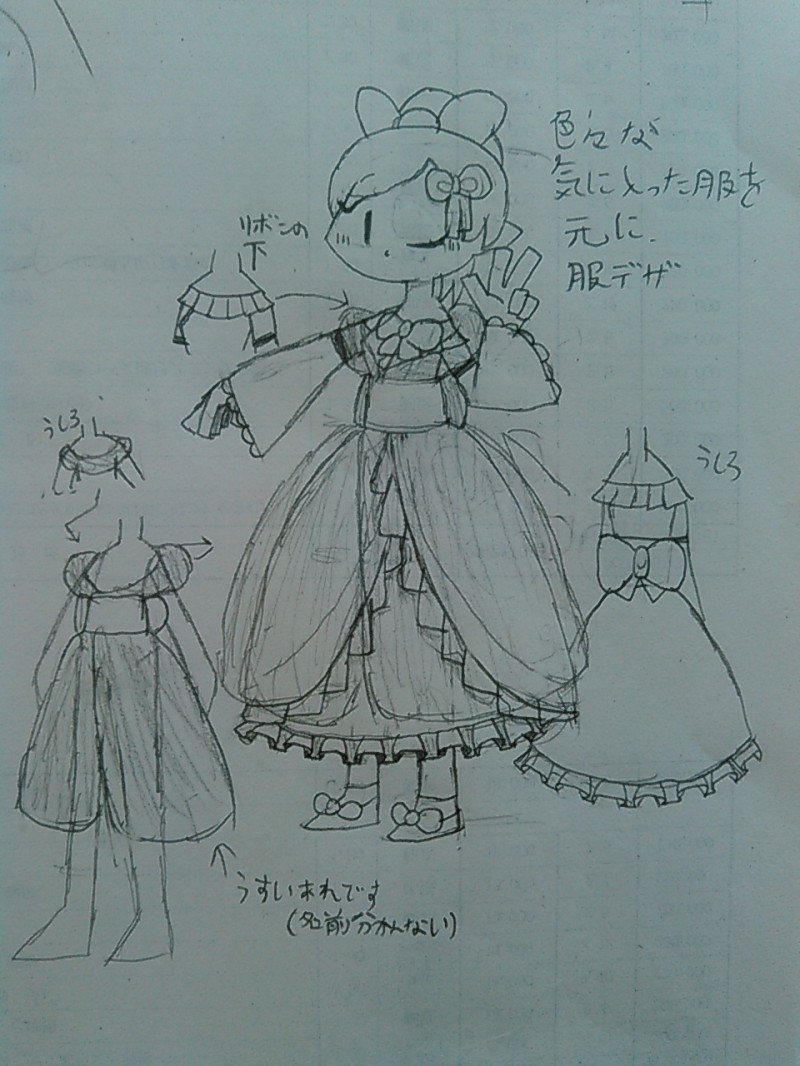 色々な
気に入った服を
元に
服デザ
リボンの
下
うしろ
うしろ
うすいあれです
(名前分かんない)